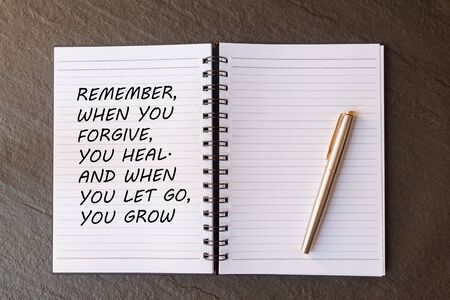 REMEMBER,
WHEN YOU
FORGIVE,
YOU HEAL.
AND WHEN
YOU LET GO,
YOU GROW